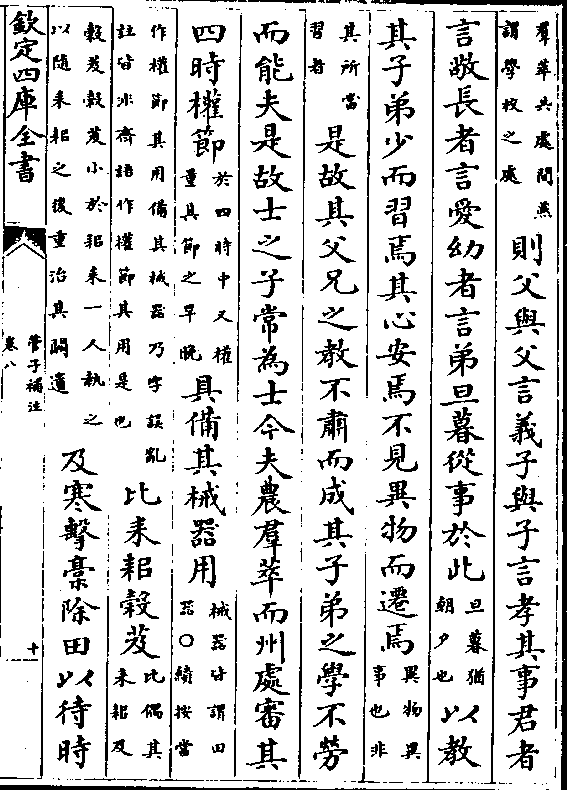 羣萃共處閒燕
謂學校之處
則父與父言義子與子言孝其事君者
言敬長者言愛幼者言弟旦暮從事於此
旦暮猶
朝夕也
以教
其子弟少而習焉其心安焉不見異物而遷焉
異物異
事也非
其所當
習者
是故其父兄之教不肅而成其子弟之學不勞
而能夫是故士之子常為士今夫農羣萃而州處審其
四時權節
於四時中又權
量其節之早晚
具備其械器用
械器皆謂田
器○績按當
作權節其用備其械器乃字誤亂
註皆非齊語作權節其用是也
比耒耜穀芨
比偶其
耒耜及
穀芨穀芨小於耜耒一人執之
以隨耒耜之後重治其闊遺
及寒擊藁除田以待時
欽定四庫全書
管子補注
卷八
十